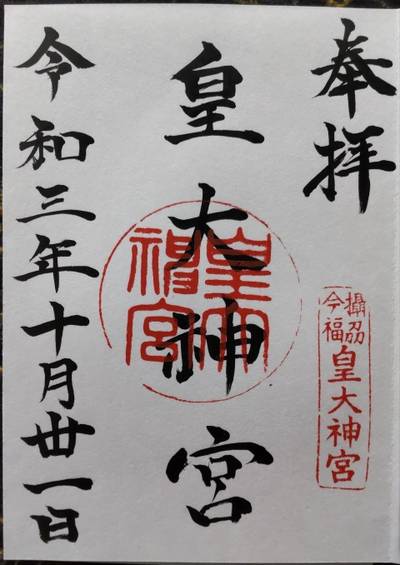 奉拝
攝刕
今福
皇大神宮
皇大神宮
皇大
神宮
令和三年十月丗一日